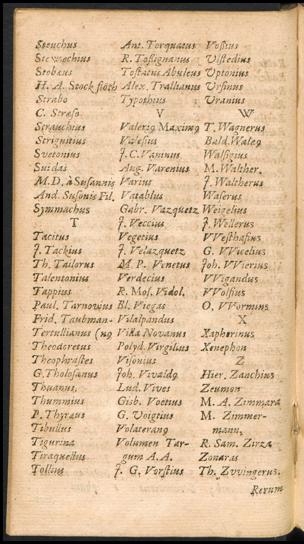 Steuchus
Stewechius
Stobæus
H. A. Stock fleth
Strabo
C. Streso
Strauchius
Strignitius
Svetonius
Suidas
M.D. à Susannis
And. Susonis Fil.
Symmachus
T
Tacitus
J. Tackius
Th. Tailorus
Talentonius
Tappius
Paul. Tarnovius
Frid. Taubman-
Tertullianus (nꝰ
Theodoretus
Theophrastes
G. Tholosanus
Thuanus.
Thummius
P. Thyræus
Tibullus
Tigurina
Tiraquellus
Tollius
Ant. Torquatus
R. Tossignanus
Tostatus Abulens
Alex. Trallianus
Typothius
V
Valerꝰ Maximꝰ
Valesius
J. C. Vaninus
Aug. Varenius
Varius
Vatablus
Gabr. Vazquetz
J. Veccius
Vegetius
J. Velazquetz
M. P. Venetus
Verdecius
R. Mos. Vidal.
Bl. Viegas
Vilalpandus
Villa Novanus
Polyd. Virgilius
Visonius
Joh. Vivaldꝰ
Lud. Vives
Gisb. Voetius
G. Voigtius
Volaterang
Volumen Tar-
gum A. A.
J. G. Vorstius
Vossius
Ulstedius
Uptonius
Ursinus
Uranius
W
T. Wagnerus
Bald. Waleꝰ
Walsigius
M. Walther.
J. Waltherus
Waserus
Weigelius
J. Wellerus
VVesthasius
G. VVucelius
Joh. VVierius
VVigandus
VVolfius
O. VVormius
X
Xapherinus
Xenephon
Z
Hier. Zanchius
Zeumon
M. A. Zimmara
M. Zimmer-
mann,
R. Sam. Zirza
Zonaras
Th. Zvvingerus.
Rerum